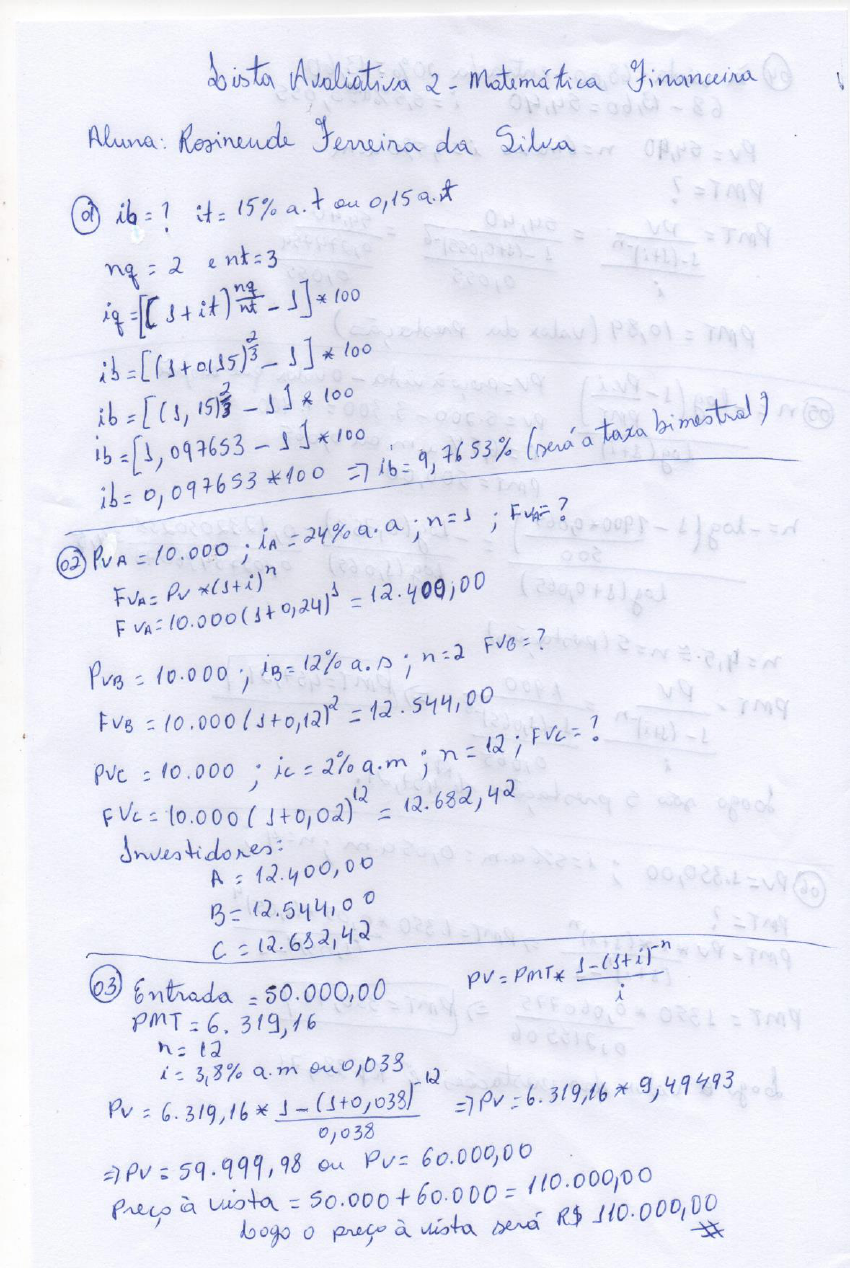 Lista Avaliativa 2 - Matemática Financeira
Aluna: Rosineude Ferreira da Silva
01 ib = ? it = 15% a.t ou 0,15 a.t
nq = 2 e nt = 3
iq = [(1 + it)^(nq/nt) - 1] * 100
ib = [(1 + 0,15)^(2/3) - 1] * 100
ib = [(1,15)^(2/3) - 1] * 100
ib = [1,097653 - 1] * 100
ib = 0,097653 * 100 => ib = 9,7653% (será a taxa bimestral)
02 PVA = 10.000 ; iA = 24% a.a ; n = 1 ; FVA = ?
FVA = PV * (1+i)^n
FVA = 10.000 (1 + 0,24)^1 = 12.400,00
PVB = 10.000 ; iB = 12% a.s ; n = 2 FVB = ?
FVB = 10.000 (1+0,12)^2 = 12.544,00
PVC = 10.000 ; ic = 2% a.m ; n = 12 ; FVC = ?
FVC = 10.000 (1+0,02)^12 = 12.682,42
Investidores:
A = 12.400,00
B = 12.544,00
C = 12.682,42
03 Entrada = 50.000,00 PV = PMT * (1-(1+i)^-n)/i
PMT = 6.319,16
n = 12
i = 3,8% a.m ou 0,038
PV = 6.319,16 * (1-(1+0,038)^-12)/0,038 => PV = 6.319,16 * 9,49493
=> PV = 59.999,98 ou PV = 60.000,00
Preço à vista = 50.000 + 60.000 = 110.000,00
Logo o preço à vista será R$ 110.000,00 #